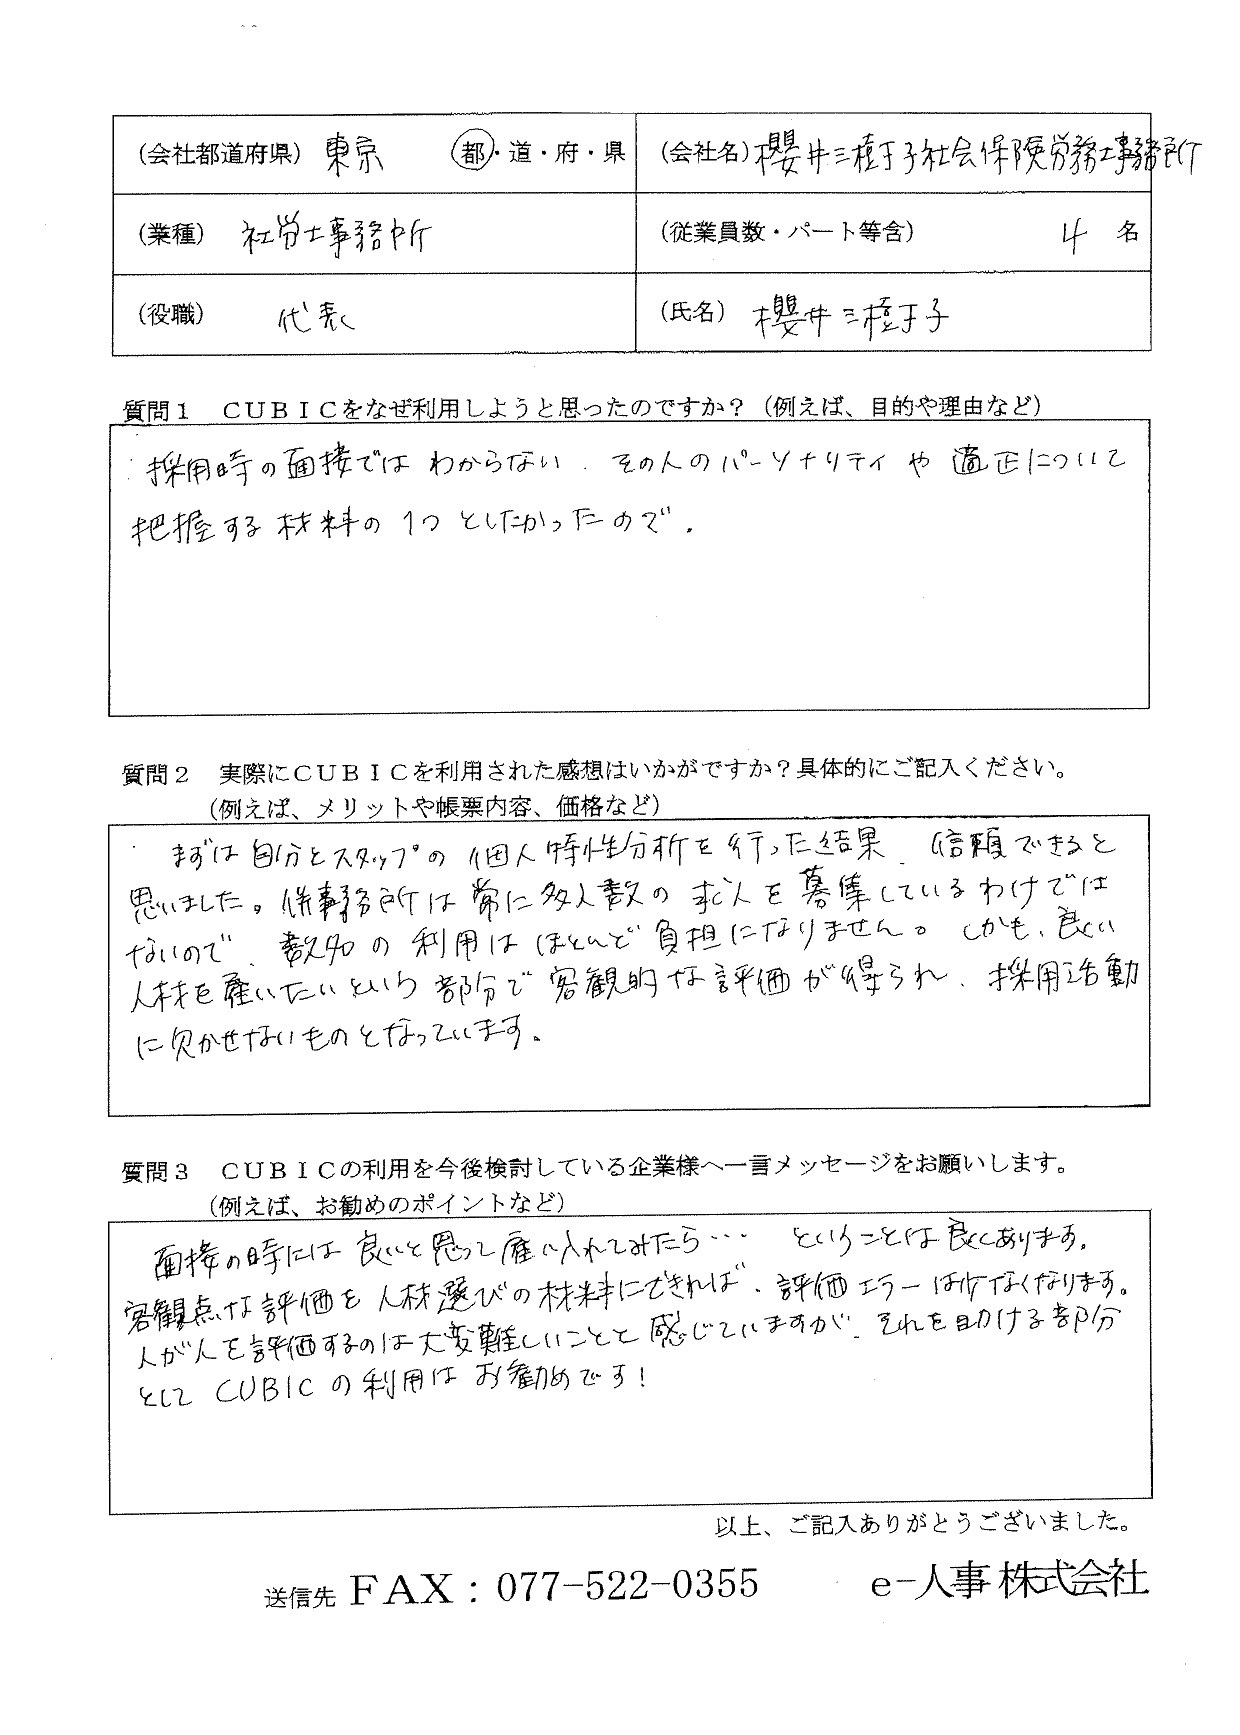 (会社都道府県) 東京 都・道・府・県 (会社名) 櫻井三樹子社会保険労務士事務所
(業種) 社労士事務所 (従業員数・パート等含) 4 名
(役職) 代表 (氏名) 櫻井三樹子
質問1 CUBICをなぜ利用しようと思ったのですか?(例えば、目的や理由など)
採用時の面接ではわからない、その人のパーソナリティや適正について
把握する材料の1つとしたかったので.
質問2 実際にCUBICを利用された感想はいかがですか?具体的にご記入ください。
(例えば、メリットや帳票内容、価格など)
まずは自分とスタッフの個人特性分析を行った結果、信頼できると
思いました。事務所は常に多人数の求人を募集しているわけでは
ないので、数名の利用はほとんど負担になりません。しかも、良い
人材を雇いたいという部分で客観的な評価が得られ、採用活動
に欠かせないものとなっています。
質問3 CUBICの利用を今後検討している企業様へ一言メッセージをお願いします。
(例えば、お勧めのポイントなど)
面接の時には良いと思って雇い入れてみたら… ということは良くあります。
客観点な評価を人材選びの材料にできれば、評価エラーは少なくなります。
人が人を評価するのは大変難しいことと感じていますが、それを助ける部分
として CUBICの利用はお勧めです!
以上、ご記入ありがとうございました。
送信先 FAX:077-522-0355 e-人事株式会社